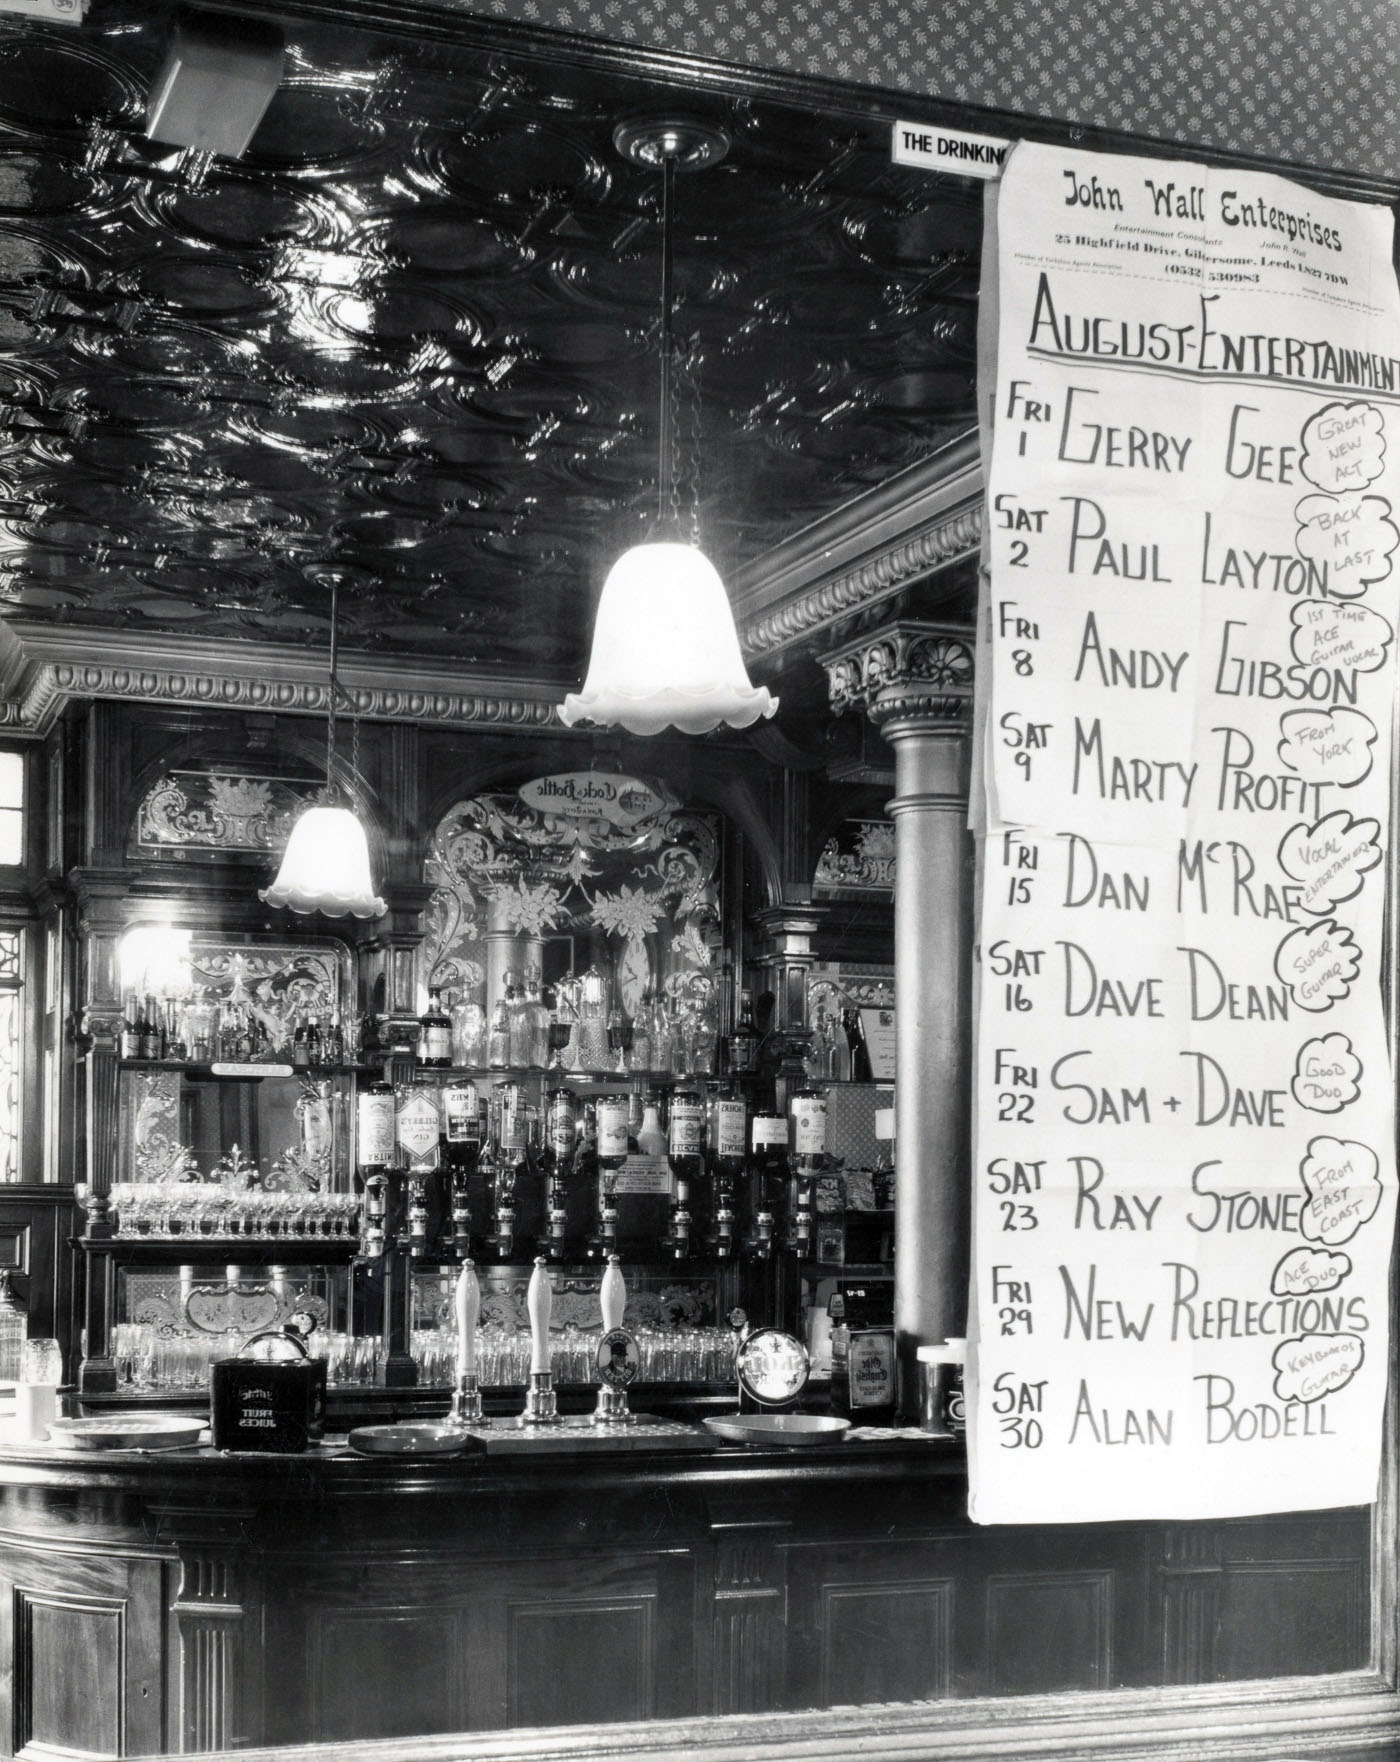 THE DRINKING
John Wall Enterprises
Entertainment Consultants John R. Wall
25 Highfield Drive, Gildersome, Leeds LS27 7DW
(0532) 530983
AUGUST-ENTERTAINMENT
FRI 1 GERRY GEE
GREAT NEW ACT
SAT 2 PAUL LAYTON
BACK AT LAST
FRI 8 ANDY GIBSON
1ST TIME ACE GUITAR VOCAL
SAT 9 MARTY PROFIT
FROM YORK
FRI 15 DAN McRAE
VOCAL ENTERTAINER
SAT 16 DAVE DEAN
SUPER GUITAR
FRI 22 SAM + DAVE
GOOD DUO
SAT 23 RAY STONE
FROM EAST COAST
FRI 29 NEW REFLECTIONS
ACE DUO
SAT 30 ALAN BODELL
KEYBOARDS GUITAR
Cock & Bottle
GILBEY'S
GIN
FRUIT
JUICES
Olde
English